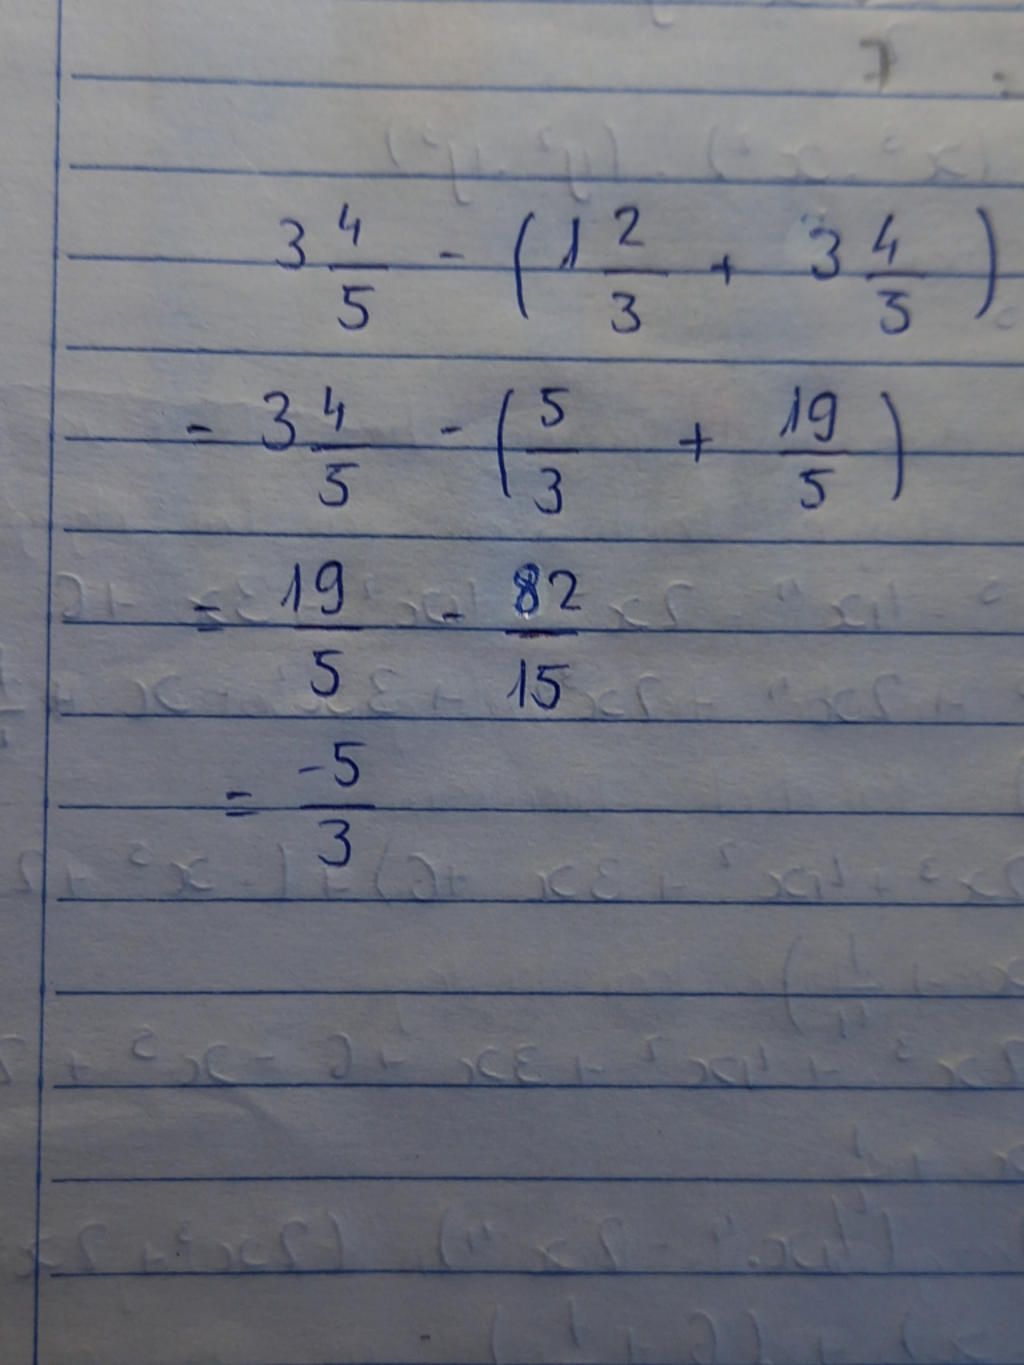 7
3 4/5 - (1 2/3 + 3 4/5)
= 3 4/5 - (5/3 + 19/5)
= 19/5 - 82/15
= -5/3